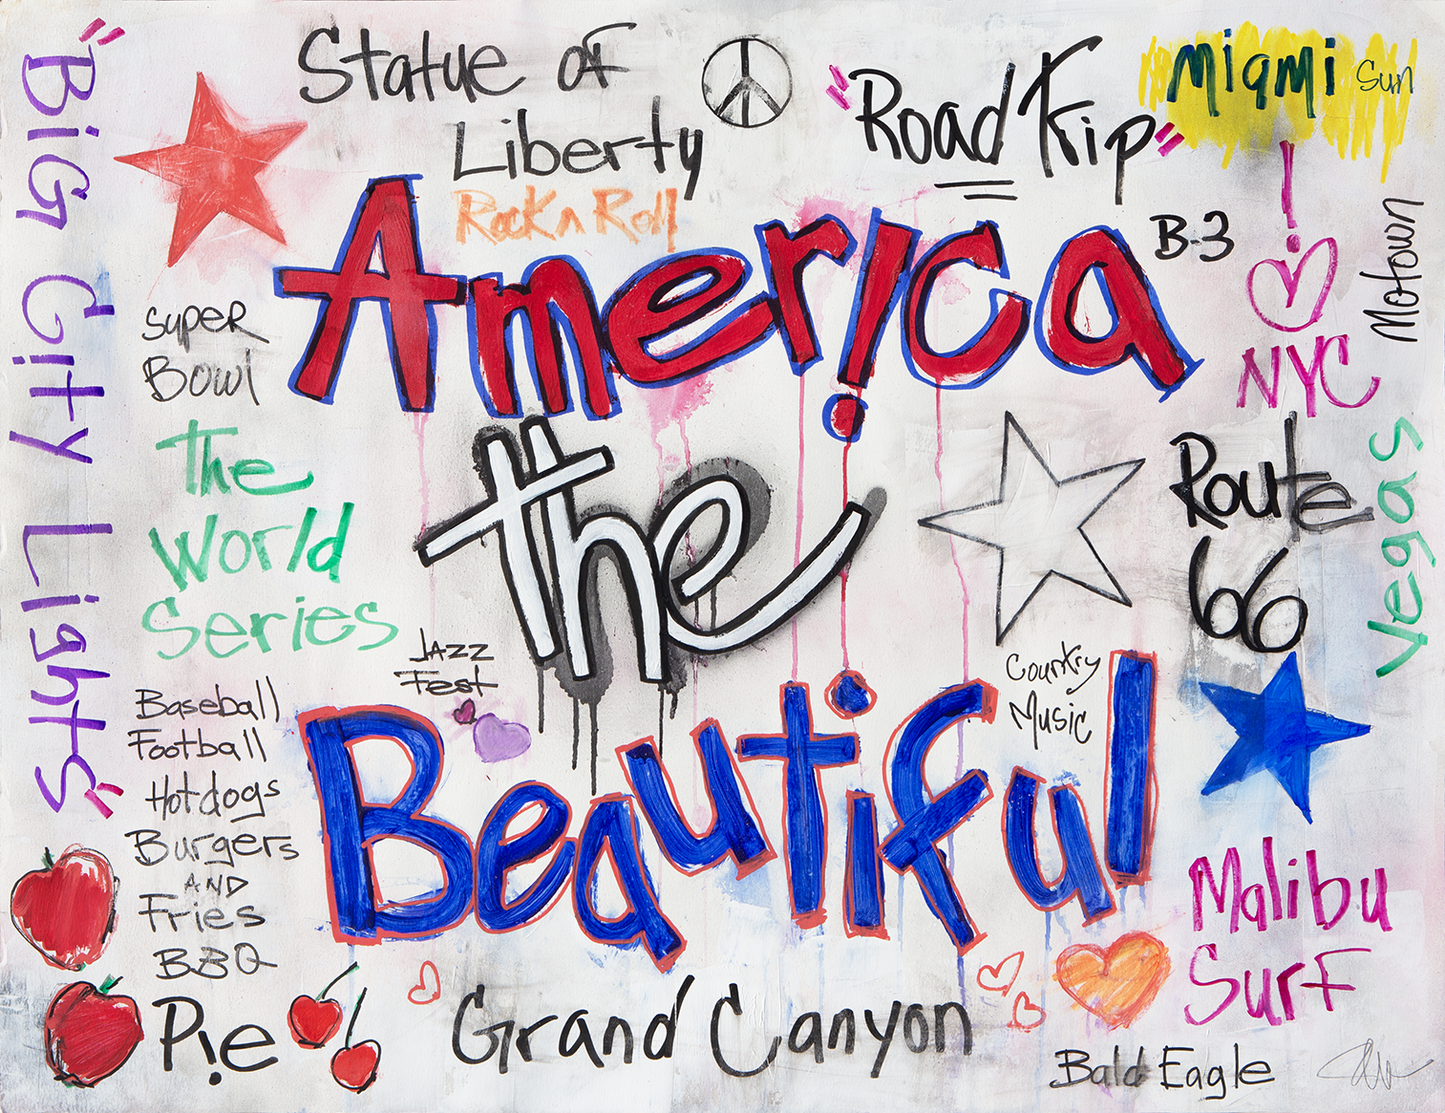 "Big City Lights"
Statue of
Liberty
Rock n Roll
"Road Trip"
Miami Sun
America
B-3
I
NYC
Motown
Super
Bowl
The
World
Series
the
Route
66
Vegas
Jazz
Fest
Country
Music
Beautiful
Baseball
Football
Hotdogs
Burgers
AND
Fries
BBQ
Pie
Grand Canyon
Malibu
Surf
Bald Eagle